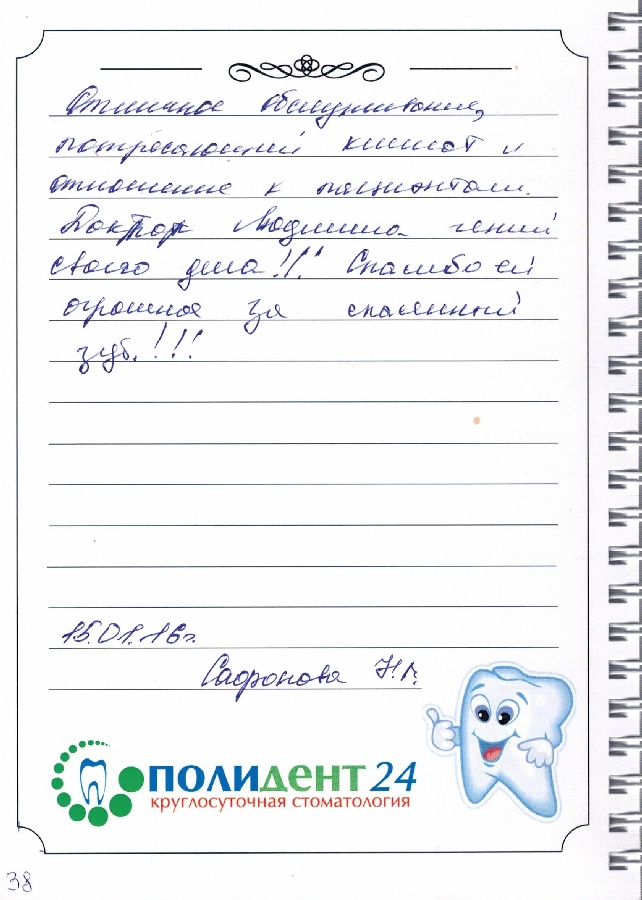 Отличное обслуживание,
потрясающий климат и
отношение к пациентам.
Доктор Людмила гений
своего дела!!! Спасибо ей
огромное за спасенный
зуб.!!!
15.01.16г.
Сафронова Н.Г.
ПОЛИДЕНТ 24
круглосуточная стоматология
38